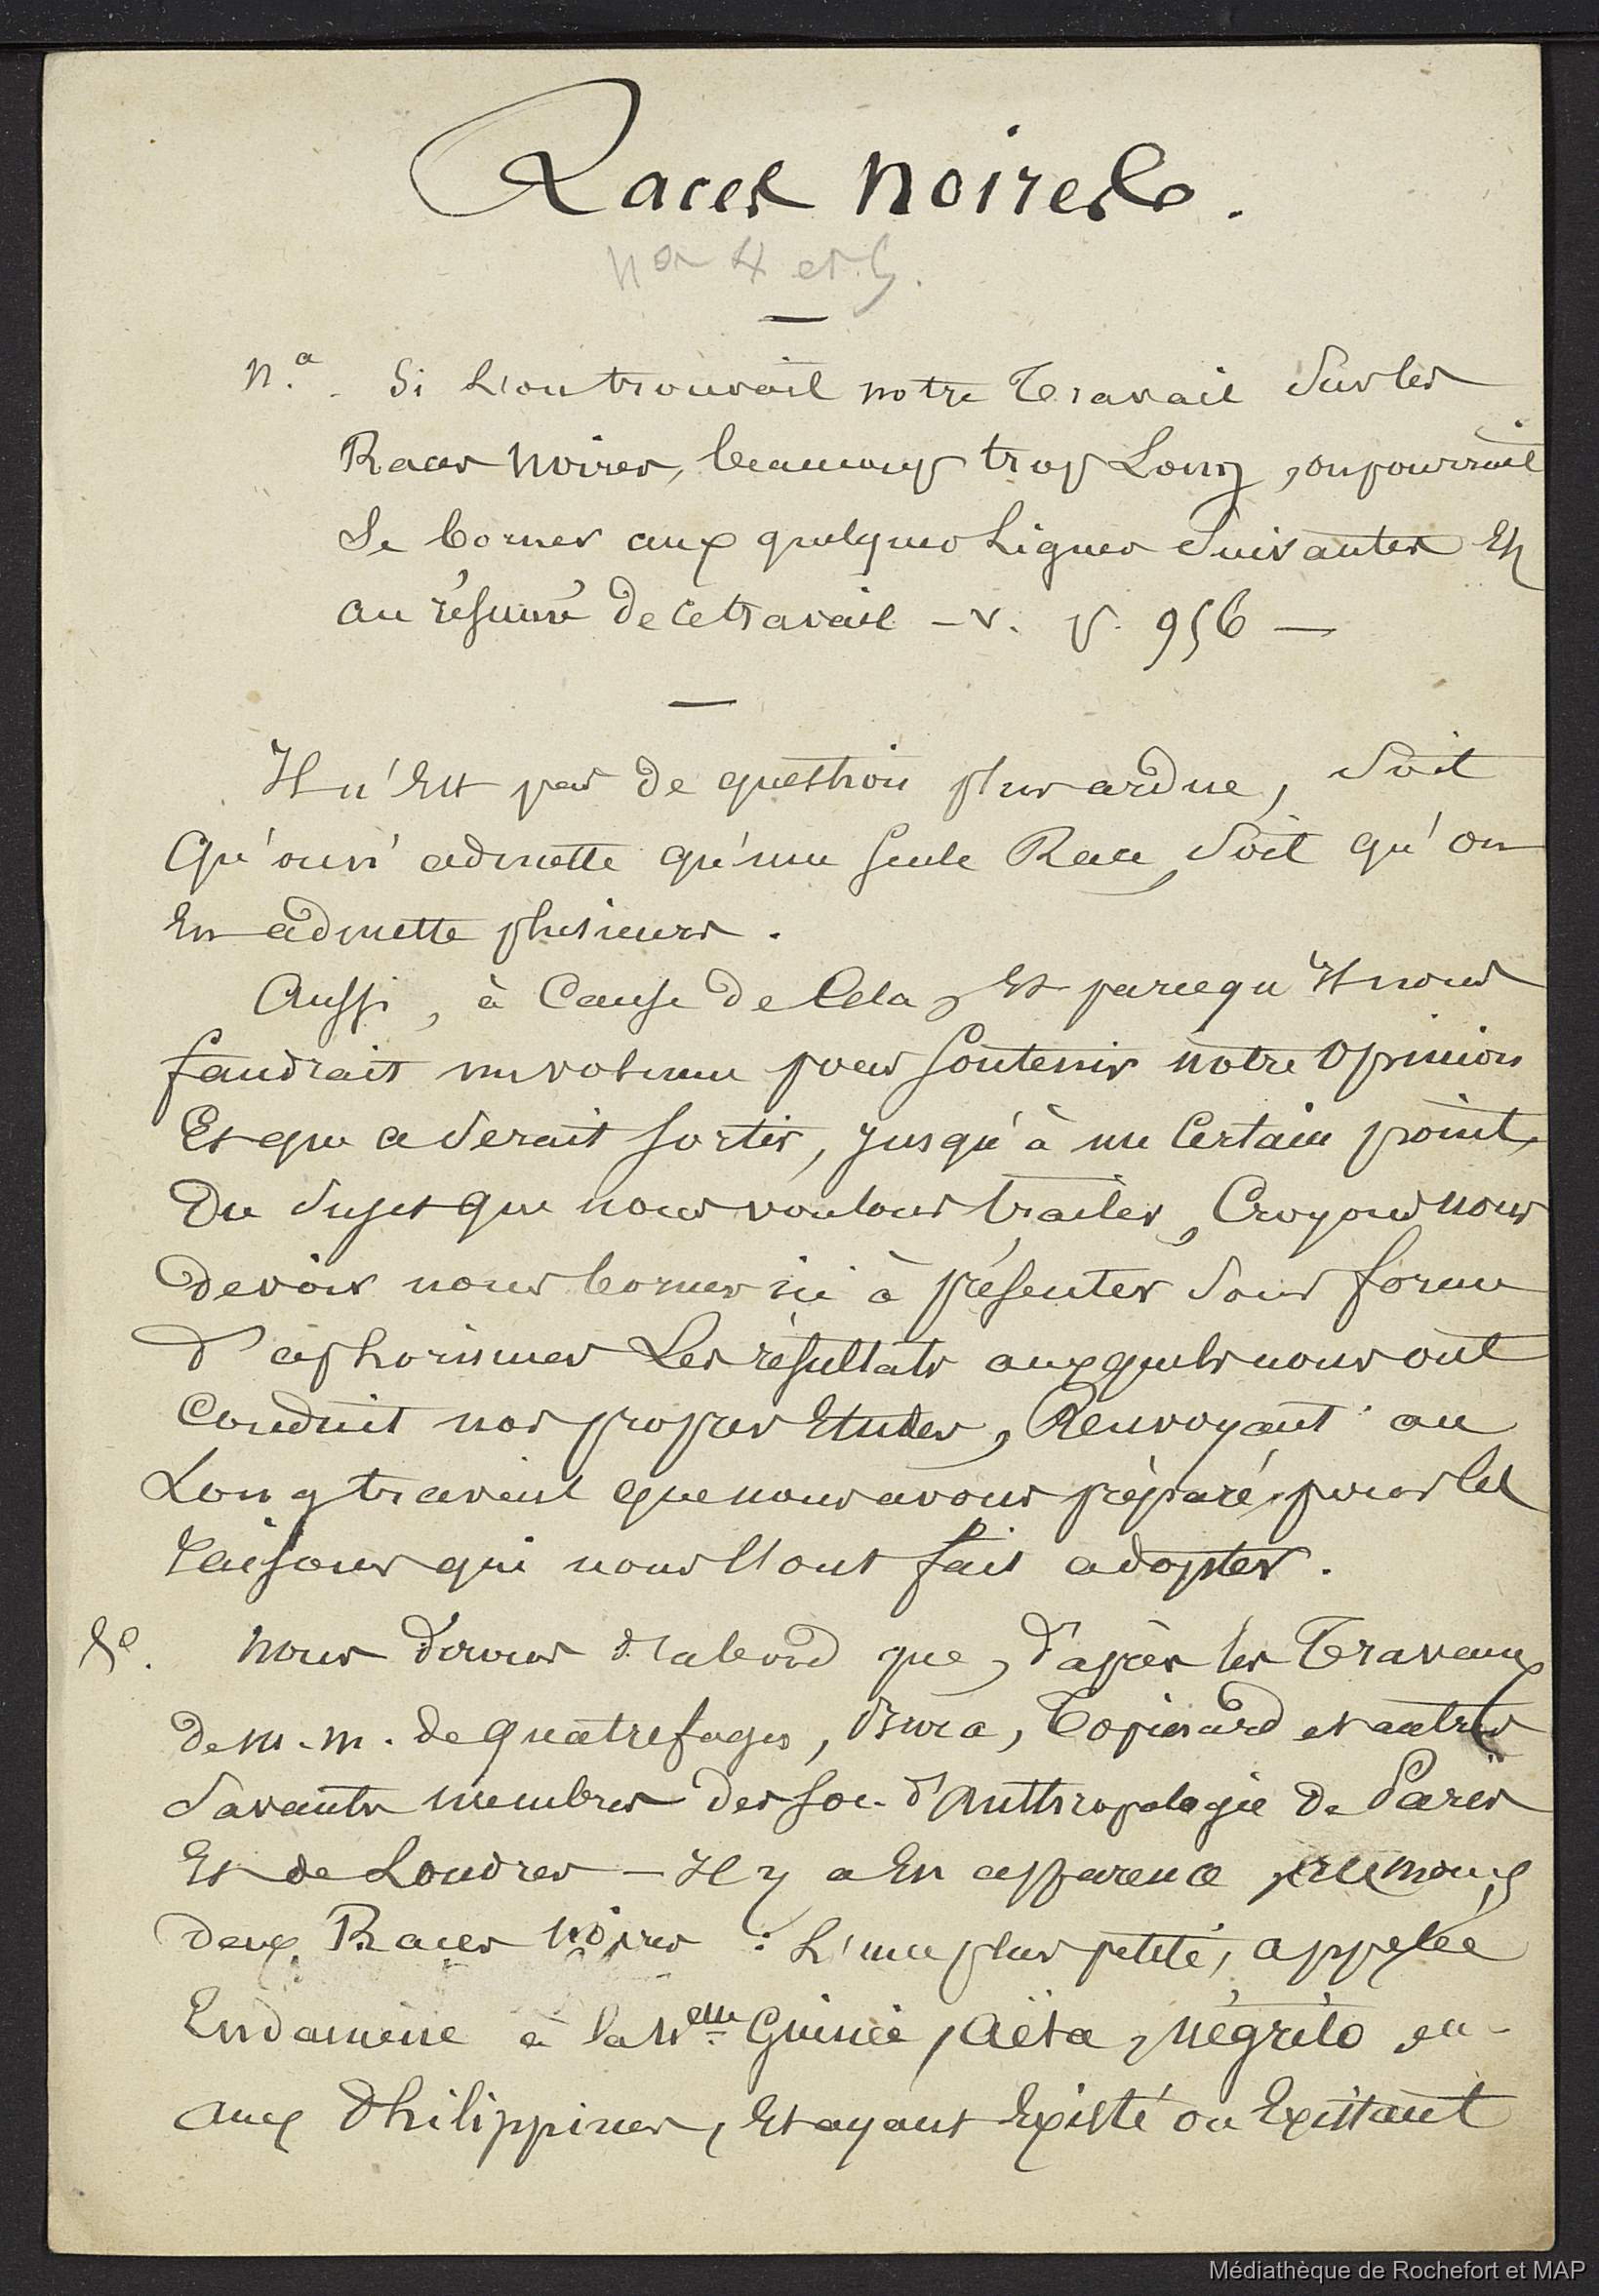 Races noires.
nos 4 et 5.
n.a. Si l'on trouvait notre travail sur les
Races noires, beaucoup trop long, on pourrait
se borner aux quelques lignes suivantes et
au résumé de ce travail - v. p. 956 -
Il n'est pas de question plus ardue, soit
qu'on n'admette qu'une seule Race, soit qu'on
en admette plusieurs.
Aussi, à cause de cela, et parcequ'il nous
faudrait un volume pour soutenir notre opinion
et que ce serait sortir, jusqu'à un certain point,
du sujet que nous voulons traiter, croyons nous
devoir nous borner ici à présenter sous forme
d'aphorismes les résultats auxquels nous ont
conduit nos propres études, Renvoyant au
long travail que nous avons préparé, pour les
raisons qui nous l'ont fait adopter.
Nous dirons d'abord que, d'après les travaux
de m.m. de quatrefages, Broca, Topinard et autres
savants membres des soc. d'Anthropologie de Paris
et de Londres - Il y a en apparence au moins
deux Races noires : l'une plus petite, appelée
Endamène à la Nelle Guinée, Aëta, négrito
aux Philippines, et ayant existé ou existant
Médiathèque de Rochefort et MAP